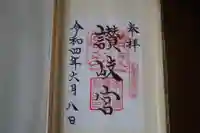 奉拝
讃岐宮
令和四年六月八日